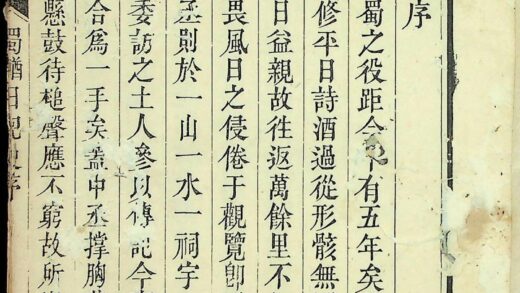 序
蜀之役距今有五年矣
修平日詩酒過從形骸無
日益親故徃返萬餘里不
畏風日之侵倦于觀覽卽
丞則於一山一水一祠宇
委訪之土人參以傳記今
合爲一手矣葢中丞撑胸
懸鼓待槌聲應不窮故所
蜀輶日記序